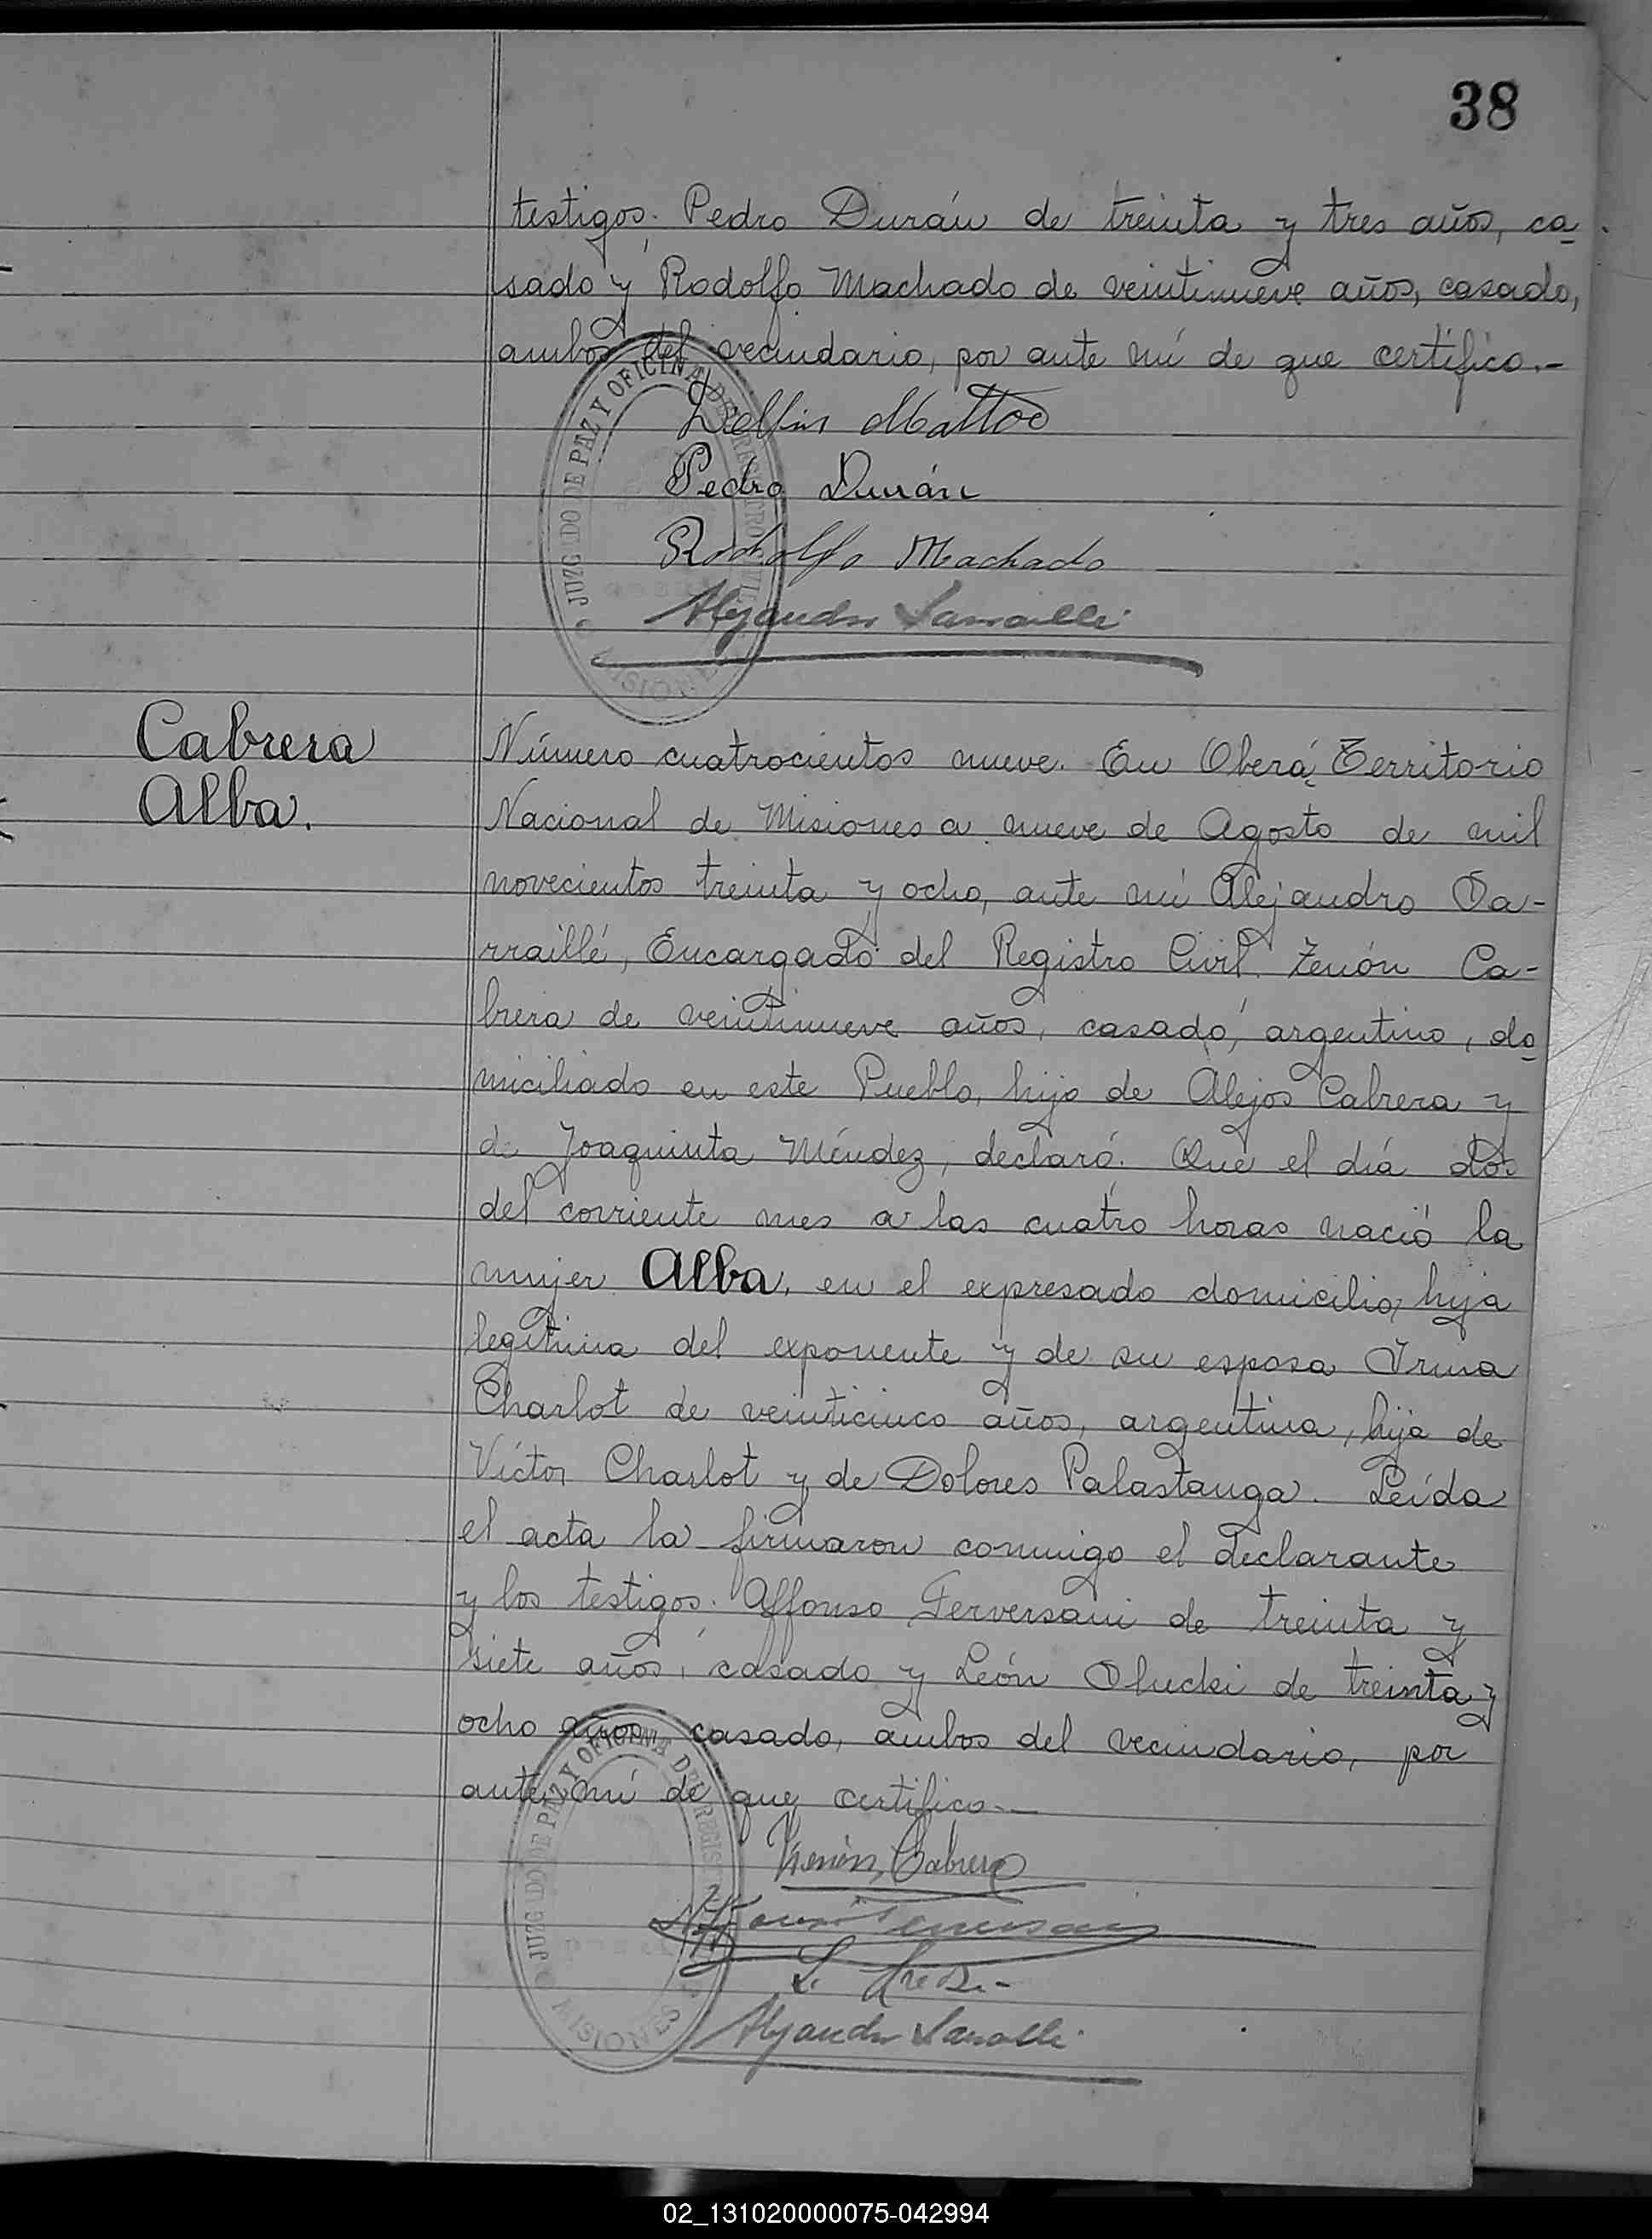 38
testigos. Pedro Durán de treinta y tres años, ca-
sado y Rodolfo Machado de veintinueve años, casado,
ambos del vecindario, por ante mí de que certifico.-
Delfin Mattos
Pedro Durán
Rodolfo Machado
Alejandro Sarraillé
JUZGADO DE PAZ Y OFICINA DE REGISTRO CIVIL
MISIONES
Cabrera
Alba.
Número cuatrocientos nueve. En Oberá, Territorio
Nacional de Misiones a nueve de Agosto de mil
novecientos treinta y ocho, ante mí Alejandro Sa-
rraillé, Encargado del Registro Civil. Zenón Ca-
brera de veintinueve años, casado, argentino, do-
miciliado en este Pueblo, hijo de Alejos Cabrera y
de Joaquinta Méndez, declaró: Que el día dos
del corriente mes a las cuatro horas nació la
mujer Alba, en el expresado domicilio, hija
legítima del exponente y de su esposa Irma
Charlot de veinticinco años, argentina, hija de
Víctor Charlot y de Dolores Palastanga. Leída
el acta la firmaron conmigo el declarante
y los testigos. Affonso Ferversani de treinta y
siete años, casado y León Slucki de treinta y
ocho años casado, ambos del vecindario, por
ante mí de que certifico.-
Zenón Cabrera
L.
Alejandro Sarraillé
JUZGADO DE PAZ Y OFICINA DE REGISTRO
MISIONES
02_131020000075-042994